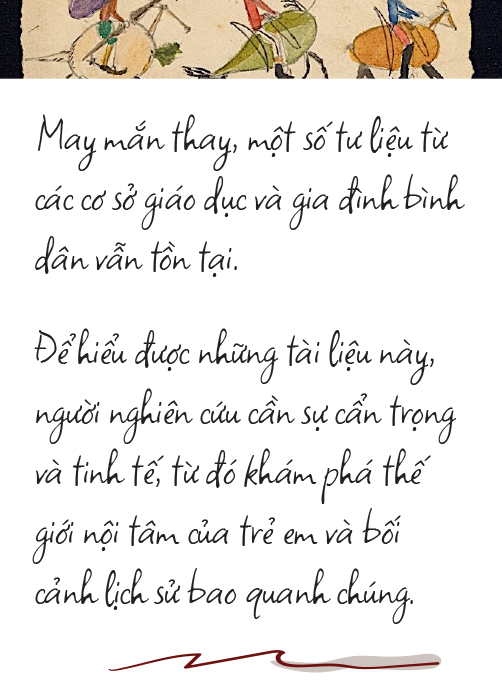 May mắn thay, một số tư liệu từ
các cơ sở giáo dục và gia đình bình
dân vẫn tồn tại.
Để hiểu được những tài liệu này,
người nghiên cứu cần sự cẩn trọng
và tinh tế, từ đó khám phá thế
giới nội tâm của trẻ em và bối
cảnh lịch sử bao quanh chúng.